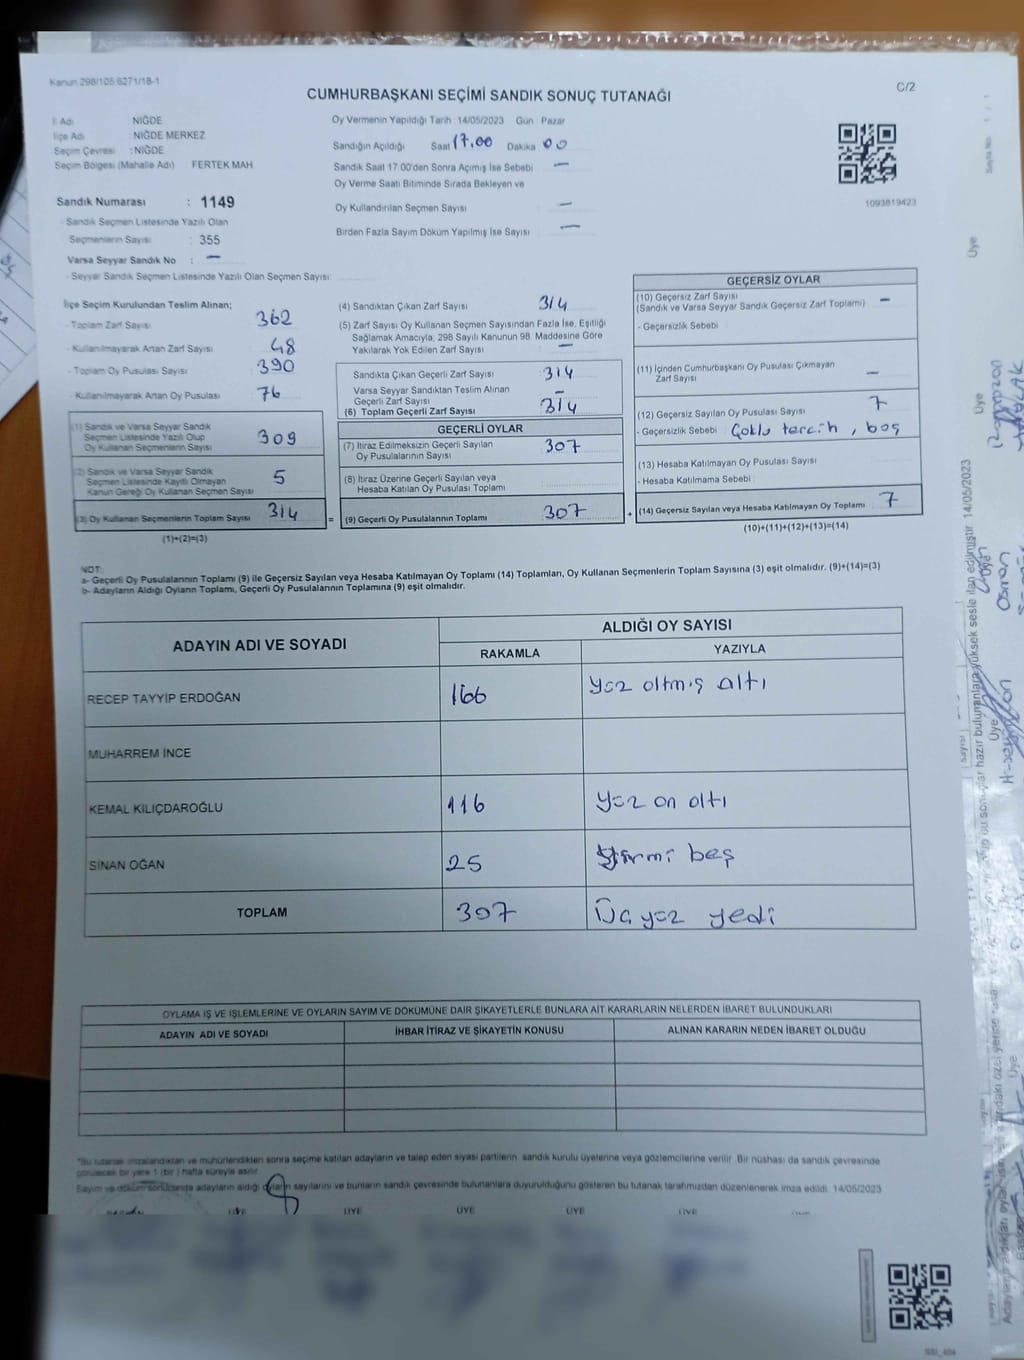 Kanun 298/105 6271/18-1
C/2
CUMHURBAŞKANI SEÇİMİ SANDIK SONUÇ TUTANAĞI
İl Adı NİĞDE
İlçe Adı NİĞDE MERKEZ
Seçim Çevresi : NİĞDE
Seçim Bölgesi (Mahalle Adı) FERTEK MAH.
Oy Vermenin Yapıldığı Tarih : 14/05/2023 Gün Pazar
Sandığın Açıldığı Saat 17.00 Dakika 00
Sandık Saat 17:00'den Sonra Açımış İse Sebebi —
Oy Verme Saati Bitiminde Sırada Bekleyen ve
Oy Kullandırılan Seçmen Sayısı —
Birden Fazla Sayım Döküm Yapılmış İse Sayısı —
1093819423
Sandık Numarası : 1149
- Sandık Seçmen Listesinde Yazılı Olan
Seçmenlerin Sayısı : 355
Varsa Seyyar Sandık No : —
- Seyyar Sandık Seçmen Listesinde Yazılı Olan Seçmen Sayısı:
İlçe Seçim Kurulundan Teslim Alınan;
- Toplam Zarf Sayısı 362
- Kullanılmayarak Artan Zarf Sayısı 48
- Toplam Oy Pusulası Sayısı 390
- Kullanılmayarak Artan Oy Pusulası 76
(1) Sandık ve Varsa Seyyar Sandık
Seçmen Listesinde Yazılı Olup
Oy Kullanan Seçmenlerin Sayısı 309
(2) Sandık ve Varsa Seyyar Sandık
Seçmen Listesinde Kayıtlı Olmayan
Kanun Gereği Oy Kullanan Seçmen Sayısı 5
(3) Oy Kullanan Seçmenlerin Toplam Sayısı 314
(1)+(2)=(3)
(4) Sandıktan Çıkan Zarf Sayısı 314
(5) Zarf Sayısı Oy Kullanan Seçmen Sayısından Fazla İse, Eşitliği
Sağlamak Amacıyla, 298 Sayılı Kanunun 98. Maddesine Göre
Yakılarak Yok Edilen Zarf Sayısı —
Sandıkta Çıkan Geçerli Zarf Sayısı 314
Varsa Seyyar Sandıktan Teslim Alınan
Geçerli Zarf Sayısı —
(6) Toplam Geçerli Zarf Sayısı 314
GEÇERLİ OYLAR
(7) İtiraz Edilmeksizin Geçerli Sayılan
Oy Pusulalarının Sayısı 307
(8) İtiraz Üzerine Geçerli Sayılan veya
Hesaba Katılan Oy Pusulası Toplamı
= (9) Geçerli Oy Pusulalarının Toplamı 307 +
GEÇERSİZ OYLAR
(10) Geçersiz Zarf Sayısı —
(Sandık ve Varsa Seyyar Sandık Geçersiz Zarf Toplamı)
- Geçersizlik Sebebi
(11) İçinden Cumhurbaşkanı Oy Pusulası Çıkmayan
Zarf Sayısı —
(12) Geçersiz Sayılan Oy Pusulası Sayısı 7
- Geçersizlik Sebebi Çoklu tercih, boş
(13) Hesaba Katılmayan Oy Pusulası Sayısı
- Hesaba Katılmama Sebebi
(14) Geçersiz Sayılan veya Hesaba Katılmayan Oy Toplamı 7
(10)+(11)+(12)+(13)=(14)
NOT:
a- Geçerli Oy Pusulalarının Toplamı (9) ile Geçersiz Sayılan veya Hesaba Katılmayan Oy Toplamı (14) Toplamları, Oy Kullanan Seçmenlerin Toplam Sayısına (3) eşit olmalıdır. (9)+(14)=(3)
b- Adayların Aldığı Oyların Toplamı, Geçerli Oy Pusulalarının Toplamına (9) eşit olmalıdır.
ADAYIN ADI VE SOYADI
ALDIĞI OY SAYISI
RAKAMLA YAZIYLA
RECEP TAYYİP ERDOĞAN 166 Yüz altmış altı
MUHARREM İNCE
KEMAL KILIÇDAROĞLU 116 Yüz on altı
SİNAN OĞAN 25 Yirmi beş
TOPLAM 307 Üç yüz yedi
OYLAMA İŞ VE İŞLEMLERİNE VE OYLARIN SAYIM VE DÖKÜMÜNE DAİR ŞİKAYETLERLE BUNLARA AİT KARARLARIN NELERDEN İBARET BULUNDUKLARI
ADAYIN ADI VE SOYADI İHBAR İTİRAZ VE ŞİKAYETİN KONUSU ALINAN KARARIN NEDEN İBARET OLDUĞU
*Bu tutanak imzalandıktan ve mühürlendikten sonra seçime katılan adayların ve talep eden siyasi partilerin sandık kurulu üyelerine veya gözlemcilerine verilir. Bir nüshası da sandık çevresinde
görülecek bir yere 1 (bir) hafta süreyle asılır.
Sayım ve döküm sonucunda adayların aldığı oyların sayılarını ve bunların sandık çevresinde bulunanlara duyurulduğunu gösteren bu tutanak tarafımızdan düzenlenerek imza edildi. 14/05/2023
ÜYE ÜYE ÜYE ÜYE ÜYE
Üye
Üye
Üye
Osman